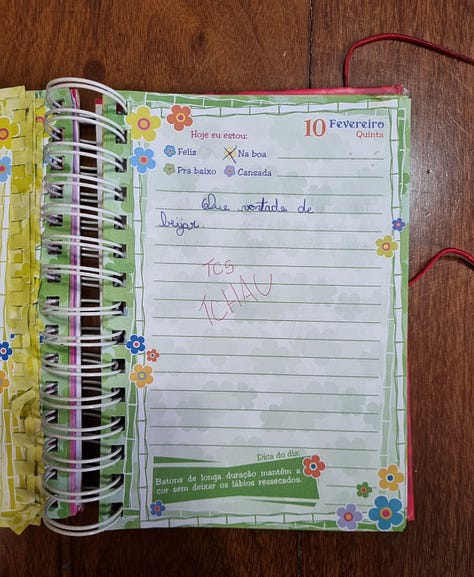 10 Fevereiro
Quinta
Hoje eu estou:
Feliz Na boa
Pra baixo Cansada
Que vontade de
beijar.
TCS
TCHAU
Dica do dia:
Batons de longa duração mantêm a
cor sem deixar os lábios ressecados.